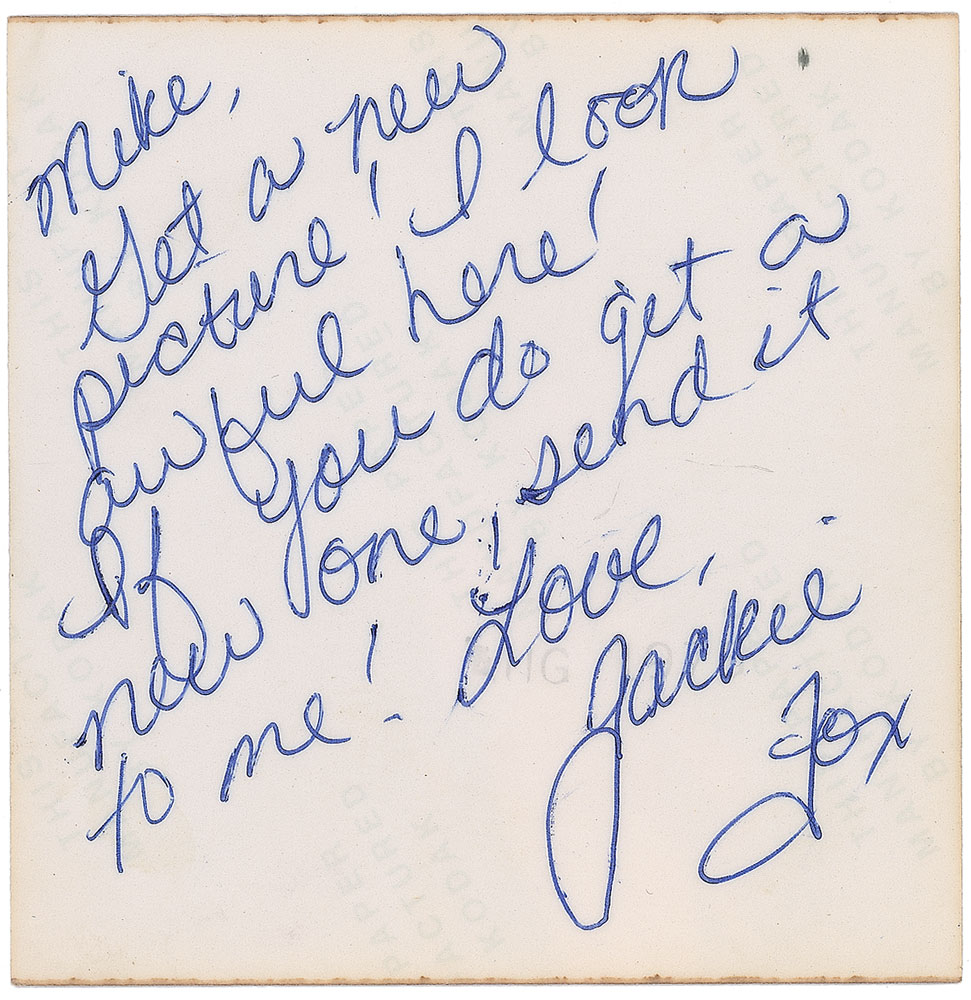 Mike,
Get a new
picture! I look
awful here!
If you do get a
new one, send it
to me! Love,
Jackie
Fox
THIS PAPER
MANUFACTURED
BY KODAK